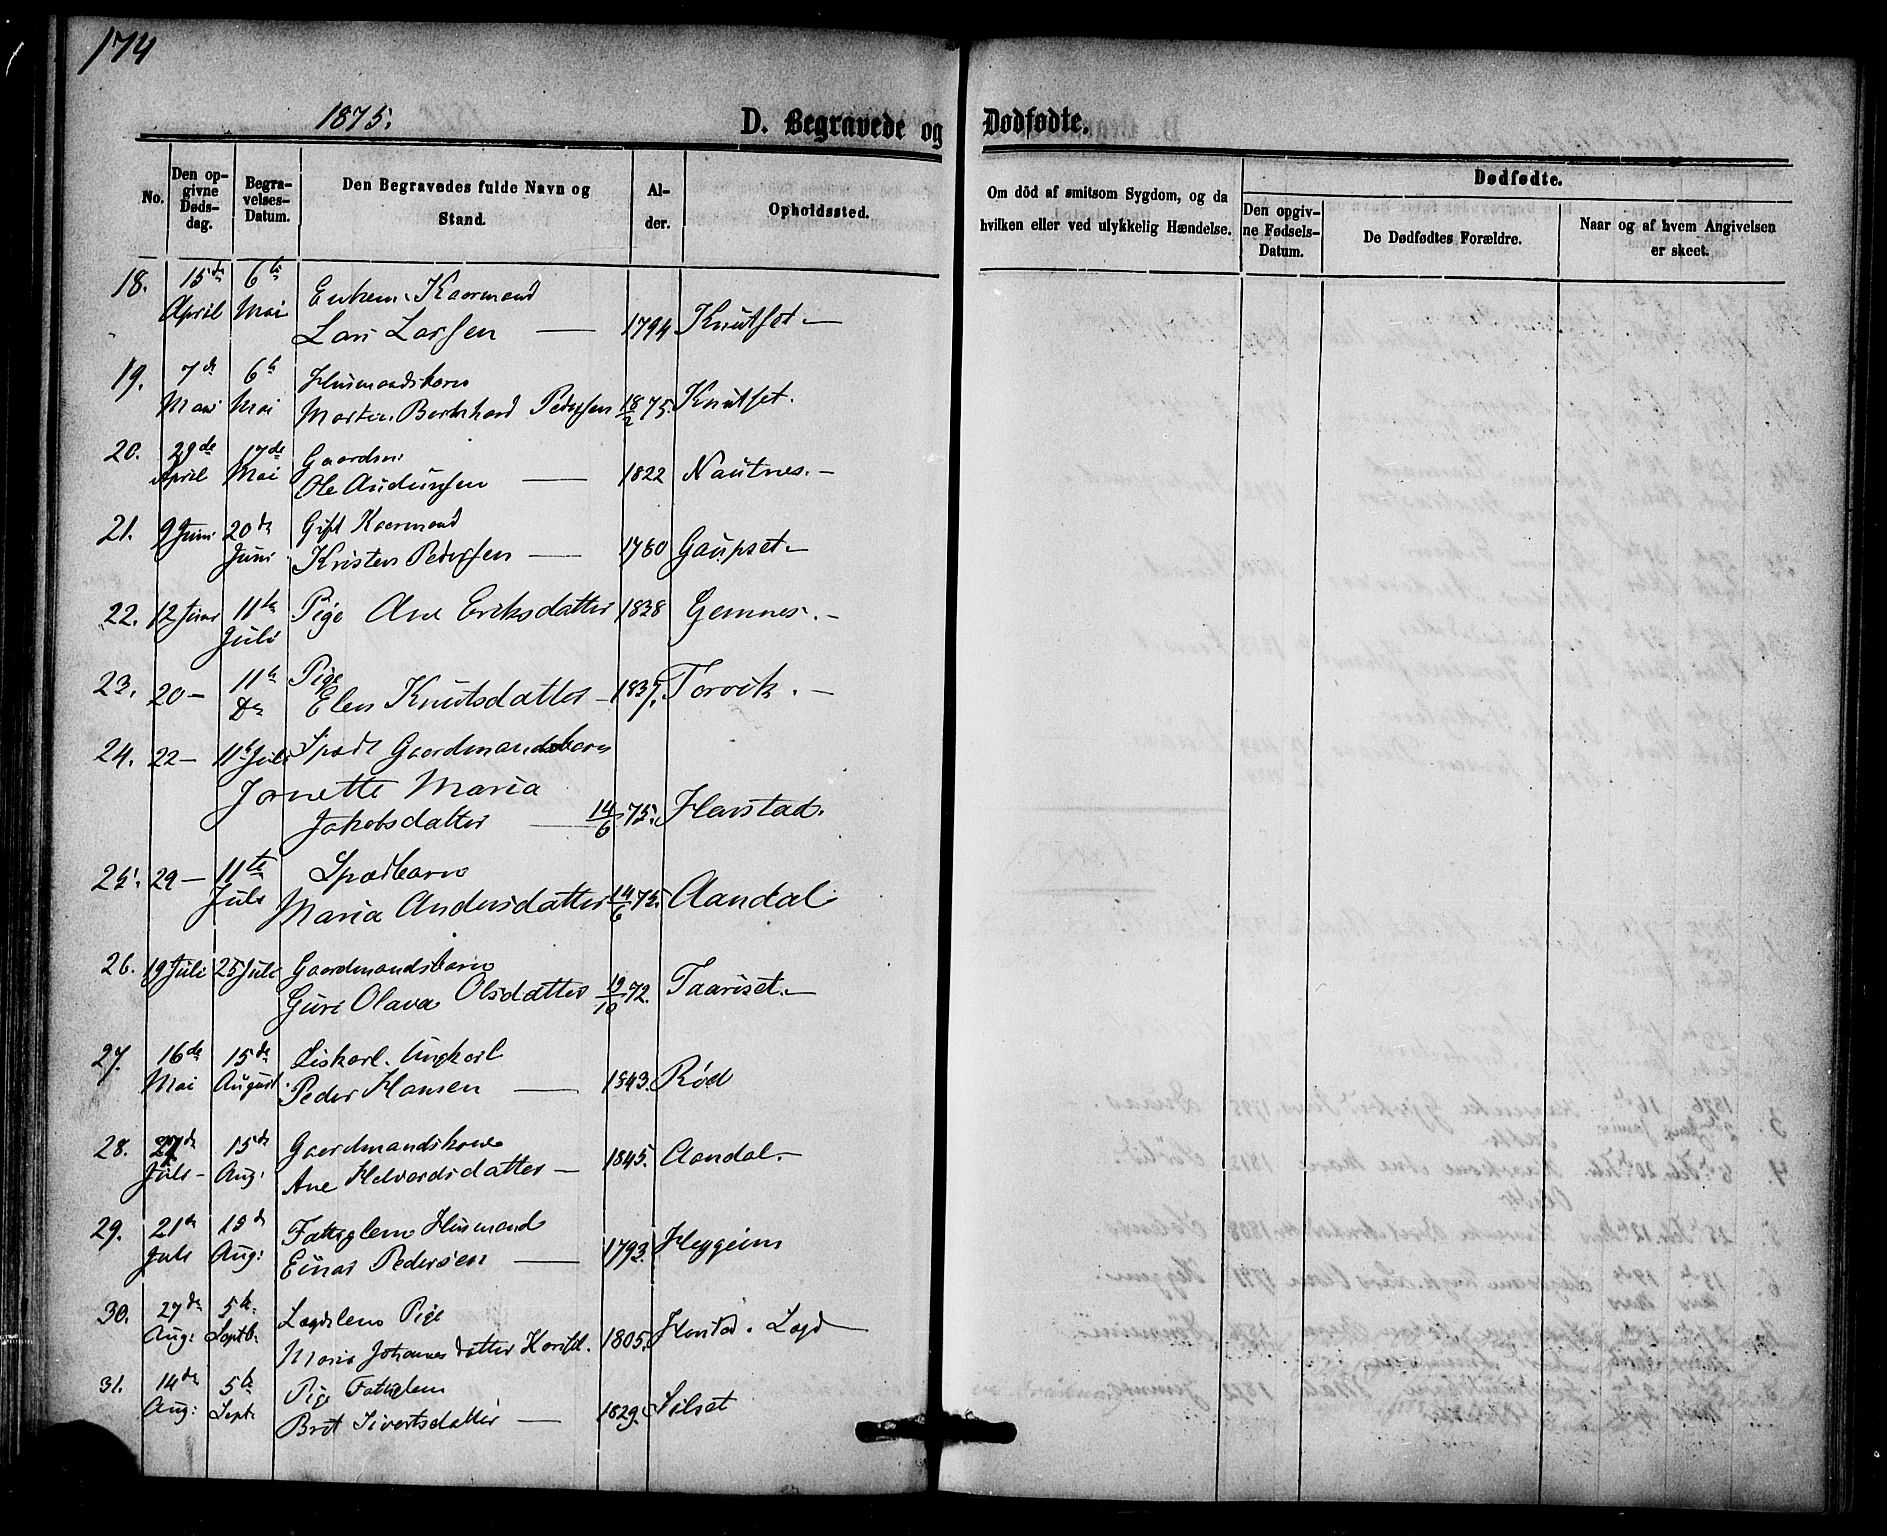 174
1875.
D. Begravede og Dødfødte.
No.
Den opgivne Dødsdag.
Begravelses-Datum.
Den Begravedes fulde Navn og Stand.
Alder.
Opholdssted.
Om död af smitsom Sygdom, og da hvilken eller ved ulykkelig Hændelse.
Dødfødte.
Den opgivne Fødsels-Datum.
De Dødfødtes Forældre.
Naar og af hvem Angivelsen er skeet.
18. 15de April 6te Mai Enkem. Kaarmand
Lars Larsen — 1794 Knutset —
19. 7de Mai 6te Mai Husmandsbarn
Morten Bernhard Pedersen 18/2 75. Knutset.
20. 29de April 17de Mai Gaardm.
Ole Audunsen — 1822 Nautnes. —
21. 9 Juni 20de Juni Gift Kaarmand
Kristen Pedersen — 1780 Gaupset —
22. 12 Juni 11te Juli Pige Ane Eriksdatter 1838 Gemnes. —
23. 20 — 11te Do Pige
Elen Knutsdatter — 1837. Torvik. —
24. 22 — 11te Juli Spædt Gaardmandsbarn
Jonette Maria
Jakobsdatter — 14/6 75. Harstad.
25. 29 — 11te Juli Spædbarn
Maria Andersdatter 14/6 75. Aandal
26. 19 Juli 25 Juli Gaardmandsbarn
Guri Olava Olsdatter 19/10 72. Taariset. —
27. 16de Mai 15de August. Ungkarl
Peder Hansen — 1843. Rød
28. 27de Juli — 15de Aug: Gaardmandskone
Ane Halvardsdatter — 1845. Aandal. —
29. 21de Juli 15de Aug: Fattiglem Husmand
Einar Pedersen — 1793. Heggeim
30. 27de Aug: 5te Septb. Lægdslem Pige
Marie Johannesdatter 1805. Lægd
31. 14de Aug: 5te Sept: Pige Fattiglem
Brit Sivertsdatter — 1829. Silset